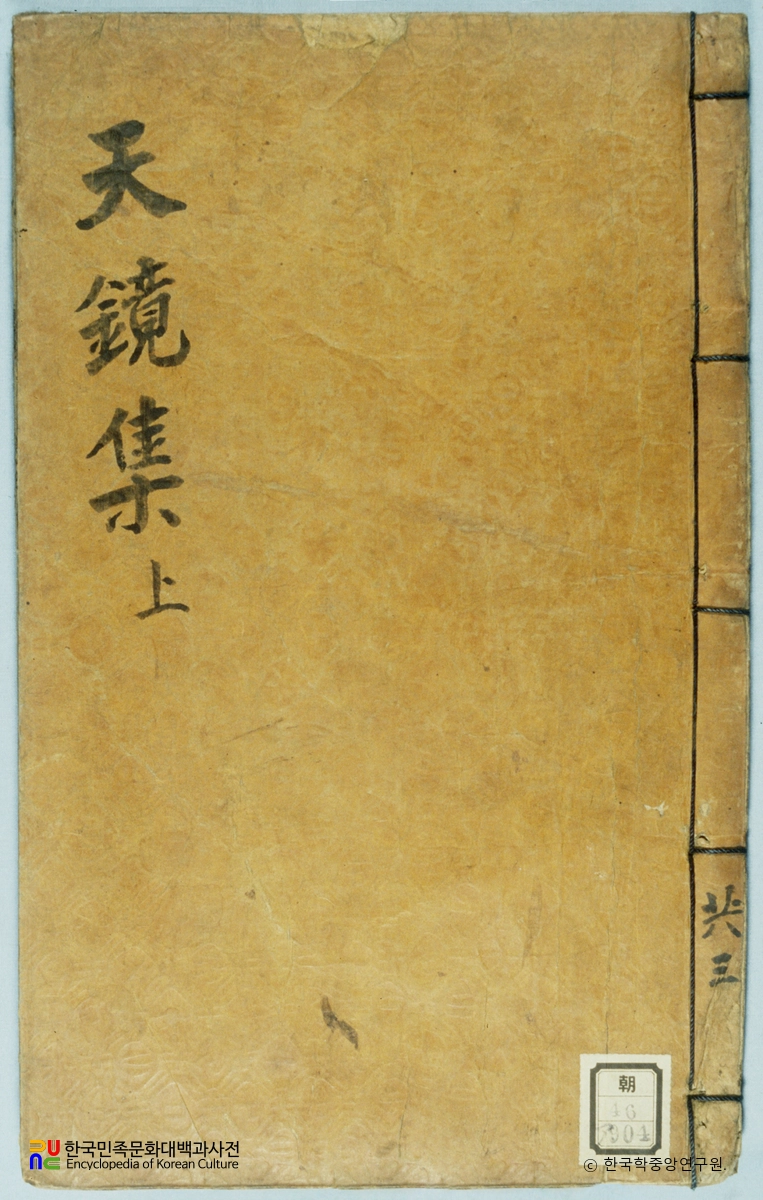 天鏡集上
共三
朝
한국민족문화대백과사전
Encyclopedia of Korean Culture
© 한국학중앙연구원